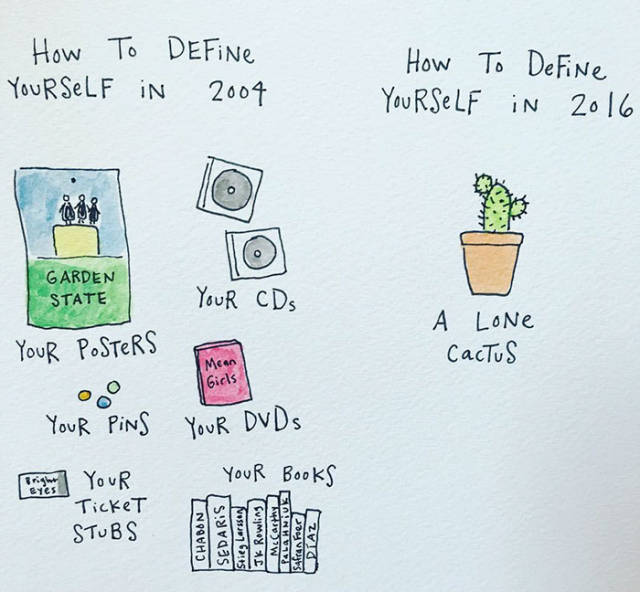 How To DEFiNE
YouRSELF iN 2004
How To DeFiNe
YouRSeLF iN 2016
GARDEN
STATE
YouR PoSTeRS
YouR CDs
YouR PiNS
Mean
Girls
YouR DVDs
Bright
EYES
YouR
TickeT
STuBS
YouR BookS
CHABON
SEDARiS
Stieg Larsson
JK Rowling
McCarthy
PALAHNiUK
Safran Foer
DiAZ
A LoNe
CacTuS